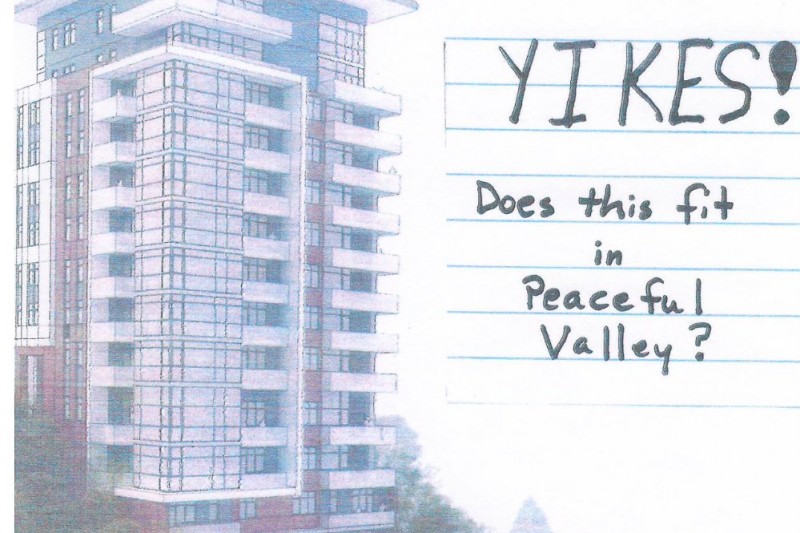 YIKES!
Does this fit
in
Peaceful
Valley?